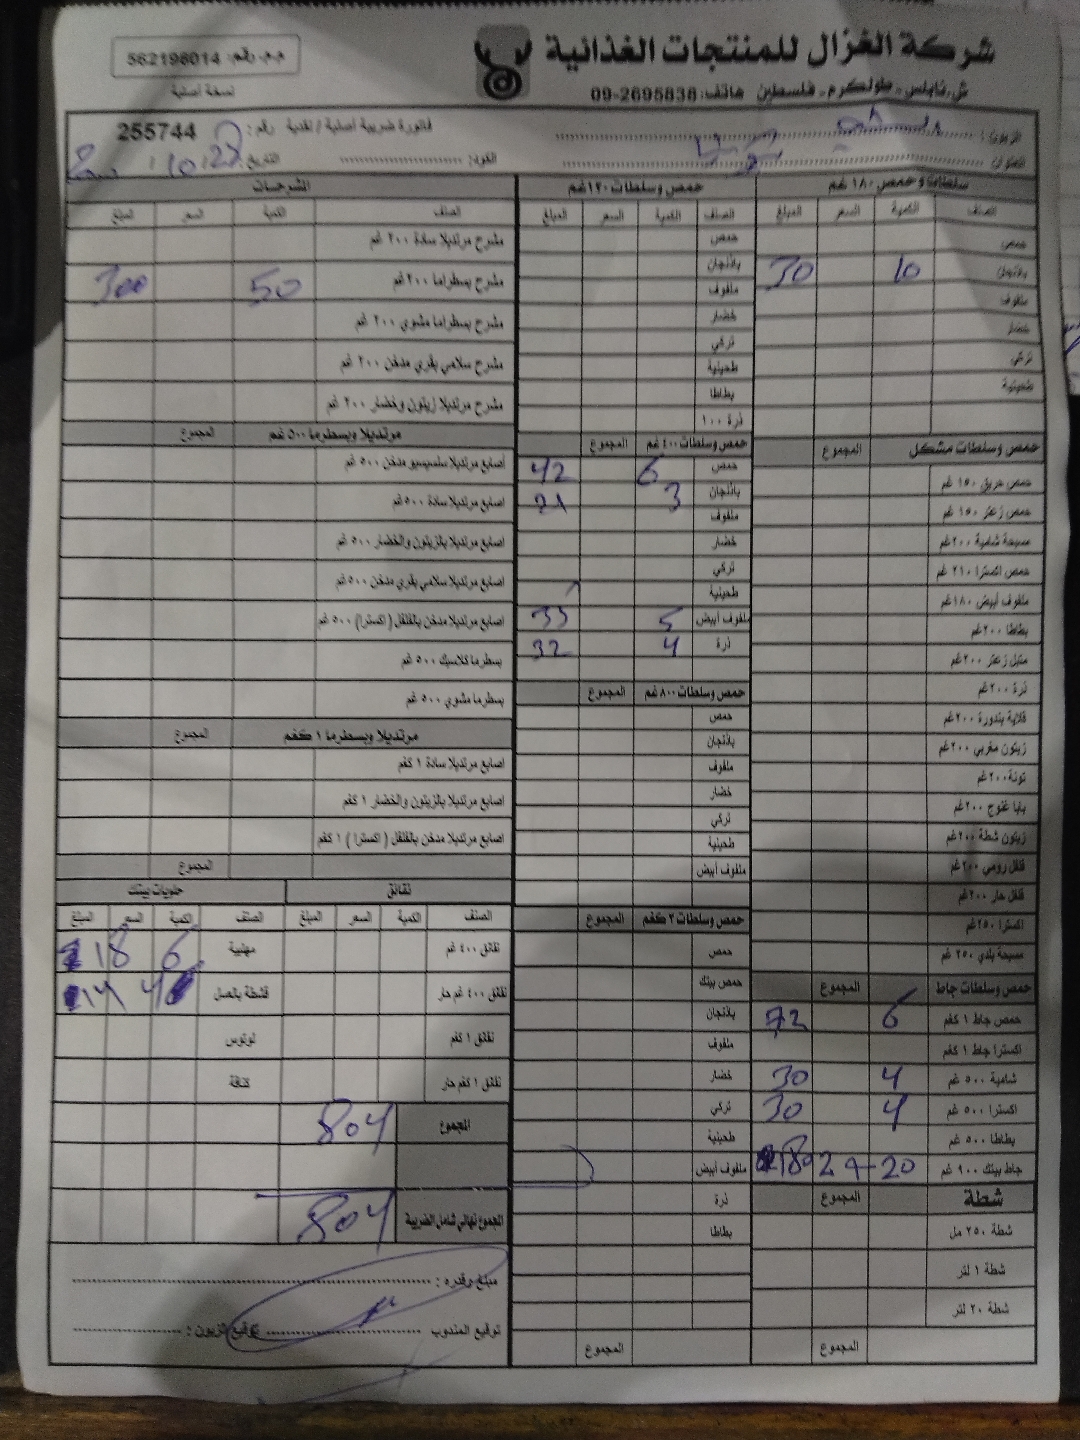 شركة الغزال للمنتجات الغذائية
م.م. رقم: 562196014
ش. نابلس - طولكرم - فلسطين هاتف: 09-2695838
نسخة أصلية
الزبون:
فاتورة ضريبية أصلية / نقدية رقم: 255744
العنوان:
الكود:
التاريخ: 10
سلطات وحمص ١٨٠ غم
الصنف الكمية السعر المبلغ
حمص
باذنجان 10 30
ملفوف
خضار
تركي
طحينية
حمص وسلطات مشكل المجموع
حمص حريق ١٥٠ غم
حمص زعتر ١٥٠ غم
مسبحة شامية ٢٠٠ غم
حمص اكسترا ٢١٠ غم
ملفوف أبيض ١٨٠ غم
بطاطا ٢٠٠ غم
متبل زعتر ٢٠٠ غم
ذرة ٢٠٠ غم
قلاية بندورة ٢٠٠ غم
زيتون مغربي ٢٠٠ غم
تونة ٢٠٠ غم
بابا غنوج ٢٠٠ غم
زيتون شطة ٢٠٠ غم
فلفل رومي ٢٠٠ غم
فلفل حار ٢٠٠ غم
اكسترا ٢٥٠ غم
مسبحة بلدي ٢٥٠ غم
حمص وسلطات جاط المجموع
حمص جاط ١ كغم 6 72
اكسترا جاط ١ كغم
شامية ٥٠٠ غم 4 30
اكسترا ٥٠٠ غم 4 30
بطاطا ٥٠٠ غم
جاط بيتك ٩٠٠ غم 20
شطة المجموع
شطة ٢٥٠ مل
شطة ١ لتر
شطة ٢٠ لتر
المجموع
حمص وسلطات ١٢٠ غم
الصنف الكمية السعر المبلغ
حمص
باذنجان
ملفوف
خضار
تركي
طحينية
بطاطا
ذرة ١٠٠
حمص وسلطات ٤٠٠ غم المجموع
حمص 6 42
باذنجان 3 21
ملفوف
خضار
تركي
طحينية
ملفوف أبيض 5
ذرة 4 32
حمص وسلطات ٨٠٠ غم المجموع
حمص
باذنجان
ملفوف
خضار
تركي
طحينية
ملفوف أبيض
حمص وسلطات ٢ كغم المجموع
حمص
حمص بيتك
باذنجان
ملفوف
خضار
تركي
طحينية
ملفوف أبيض
ذرة
بطاطا
المجموع
المشرحات
الصنف الكمية السعر المبلغ
مشرح مرتديلا سادة ٢٠٠ غم
مشرح بسطراما ٢٠٠ غم 50 300
مشرح بسطراما مشوي ٢٠٠ غم
مشرح سلامي بقري مدخن ٢٠٠ غم
مشرح مرتديلا زيتون وخضار ٢٠٠ غم
مرتديلا وبسطرما ٥٠٠ غم المجموع
اصابع مرتديلا سلسيسيو مدخن ٥٠٠ غم
اصابع مرتديلا سادة ٥٠٠ غم
اصابع مرتديلا بالزيتون والخضار ٥٠٠ غم
اصابع مرتديلا سلامي بقري مدخن ٥٠٠ غم
اصابع مرتديلا مدخن بالفلفل (اكسترا) ٥٠٠ غم
بسطرما كلاسيك ٥٠٠ غم
بسطرما مشوي ٥٠٠ غم
مرتديلا وبسطرما ١ كغم المجموع
اصابع مرتديلا سادة ١ كغم
اصابع مرتديلا بالزيتون والخضار ١ كغم
اصابع مرتديلا مدخن بالفلفل (اكسترا) ١ كغم
المجموع
نقانق حلويات بيتك
الصنف الكمية السعر المبلغ الصنف الكمية السعر المبلغ
نقانق ٤٠٠ غم مهلبية 6 18
نقانق ٤٠٠ غم حار قشطة بالعسل 4 14
نقانق ١ كغم لوتوس
نقانق ١ كغم حار كنافة
المجموع 804
المجموع نهائي شامل الضريبة 804
مبلغ وقدره:
توقيع المندوب توقيع الزبون: